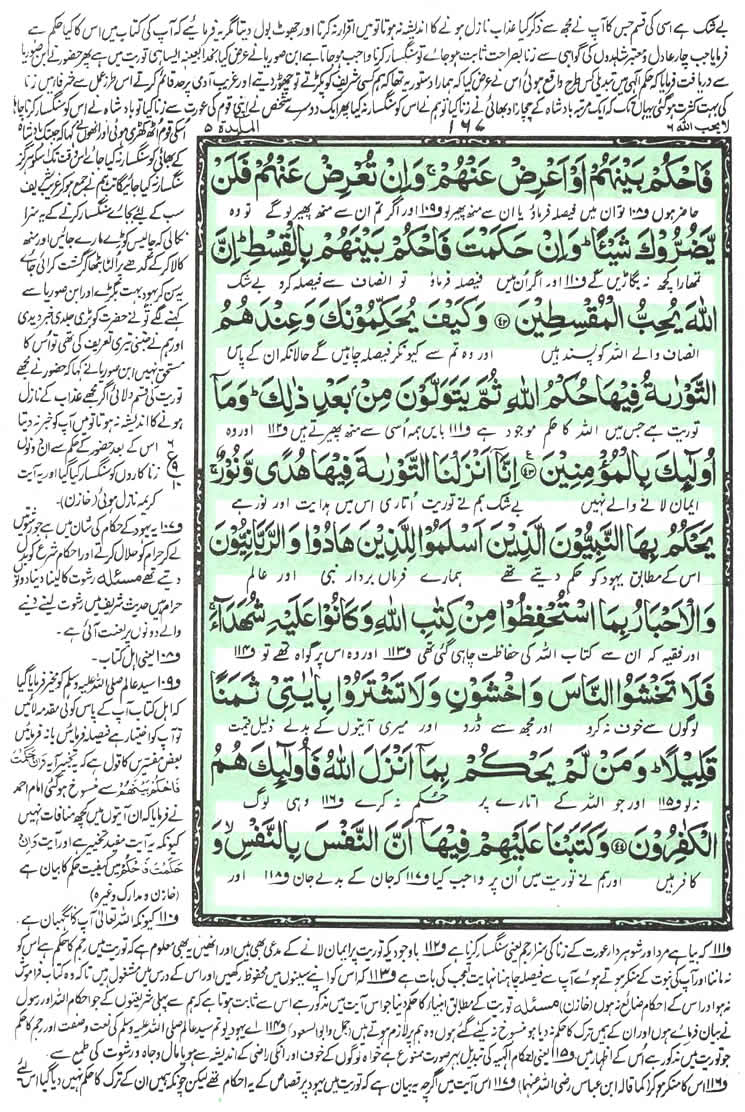 بے شک ہے اسی کی قسم جس کا آپ نے مجھ سے ذکر کیا عذاب نازل ہونے کا اندیشہ نہ ہوتا تو میں اقرار نہ کرتا اور جھوٹ بول دیتا مگر یہ فرمائیے کہ آپ کی کتاب میں اس کا کیا حکم ہے
فرمایا جب چار عادل و معتبر شاہدوں کی گواہی سے زنا بصراحت ثابت ہو جائے تو سنگسار کرنا واجب ہو جاتا ہے ابن صوریا نے عرض کیا بخدا بعینہٖ ایسا ہی توریت میں ہے پھر حضور نے ابن صوریا
سے دریافت فرمایا کہ حکم الٰہی میں تبدیلی کس طرح واقع ہوئی اس نے عرض کیا کہ ہمارا دستور یہ تھا کہ ہم کسی شریف کو پکڑتے تو چھوڑ دیتے اور غریب آدمی پر حد قائم کرتے اس طرز عمل سے شرفا میں زنا
کی بہت کثرت ہو گئی یہاں تک کہ ایک مرتبہ بادشاہ کے چچازاد بھائی نے زنا کیا تو ہم نے اس کو سنگسار نہ کیا پھر ایک دوسرے شخص نے اپنی قوم کی عورت سے زنا کیا تو بادشاہ نے اس کو سنگسار کرنا چاہا
لا یحب اللہ ۶
۱۶۷
المائدۃ ۵
فَاحْكُمْ بَیْنَهُمْ اَوْ اَعْرِضْ عَنْهُمْ ۚ وَ اِنْ تُعْرِضْ عَنْهُمْ فَلَنْ
حاضر ہوں و۱۰۸ تو ان میں فیصلہ فرماؤ یا ان سے منھ پھیر لو و۱۰۹ اور اگر تم ان سے منھ پھیر لو گے تو وہ
یَّضُرُّوْكَ شَیْـًٔا ؕ وَ اِنْ حَكَمْتَ فَاحْكُمْ بَیْنَهُمْ بِالْقِسْطِ ؕ اِنَّ
تمھارا کچھ نہ بگاڑیں گے و۱۱۰ اور اگر ان میں فیصلہ فرماؤ تو انصاف سے فیصلہ کرو بے شک
اللّٰهَ یُحِبُّ الْمُقْسِطِیْنَ ﴿۴۲﴾ وَ كَیْفَ یُحَكِّمُوْنَكَ وَ عِنْدَهُمُ
انصاف والے اللہ کو پسند ہیں اور وہ تم سے کیونکر فیصلہ چاہیں گے حالانکہ ان کے پاس
التَّوْرٰىةُ فِیْهَا حُكْمُ اللّٰهِ ثُمَّ یَتَوَلَّوْنَ مِنْۢ بَعْدِ ذٰلِكَ ؕ وَ مَاۤ
توریت ہے جس میں اللہ کا حکم موجود ہے و۱۱۱ بایں ہمہ اسی سے منھ پھیرتے ہیں و۱۱۲ اور وہ
اُولٰٓىِٕكَ بِالْمُؤْمِنِیْنَ ﴿۴۳﴾ اِنَّاۤ اَنْزَلْنَا التَّوْرٰىةَ فِیْهَا هُدًى وَّ نُوْرٌ ۚ
ایمان لانے والے نہیں بے شک ہم نے توریت اتاری اس میں ہدایت اور نور ہے
یَحْكُمُ بِهَا النَّبِیُّوْنَ الَّذِیْنَ اَسْلَمُوْا لِلَّذِیْنَ هَادُوْا وَ الرَّبّٰنِیُّوْنَ
اس کے مطابق یہود کو حکم دیتے تھے ہمارے فرماں بردار نبی اور عالم
وَ الْاَحْبَارُ بِمَا اسْتُحْفِظُوْا مِنْ كِتٰبِ اللّٰهِ وَ كَانُوْا عَلَیْهِ شُهَدَآءَ ۚ
اور فقیہ کہ ان سے کتاب اللہ کی حفاظت چاہی گئی تھی و۱۱۳ اور وہ اس پر گواہ تھے تو و۱۱۴
فَلَا تَخْشَوُا النَّاسَ وَ اخْشَوْنِ وَ لَا تَشْتَرُوْا بِاٰیٰتِیْ ثَمَنًا
لوگوں سے خوف نہ کرو اور مجھ سے ڈرو اور میری آیتوں کے بدلے ذلیل قیمت
قَلِیْلًا ؕ وَ مَنْ لَّمْ یَحْكُمْ بِمَاۤ اَنْزَلَ اللّٰهُ فَاُولٰٓىِٕكَ هُمُ
نہ لو و۱۱۵ اور جو اللہ کے اتارے پر حکم نہ کرے و۱۱۶ وہی لوگ
الْكٰفِرُوْنَ ﴿۴۴﴾ وَ كَتَبْنَا عَلَیْهِمْ فِیْهَاۤ اَنَّ النَّفْسَ بِالنَّفْسِ ۙ وَ
کافر ہیں اور ہم نے توریت میں ان پر واجب کیا و۱۱۷ کہ جان کے بدلے جان و۱۱۸ اور
اسکی قوم اٹھ کھڑی ہوئی اور انھوں نے کہا کہ جب تک بادشاہ
کے بھائی کو سنگسار نہ کیا جائے اس وقت تک اس کو ہرگز
سنگسار نہ کیا جائے گا تب ہم نے جمع ہو کر غریب شریف
سب کے لئے بجائے سنگسار کرنے کے یہ سزا
نکالی کہ چالیس کوڑے مارے جائیں اور منھ
کالا کر کے گدھے پر الٹا بٹھا کر گشت کرائی جائے
یہ سن کر یہود بہت بگڑے اور ابن صوریا سے
کہنے لگے تو نے حضرت کو بڑی جلدی خبر دیدی
اور ہم نے جتنی تیری تعریف کی تھی تو اس کا
مستحق نہیں ابن صوریا نے کہا کہ حضور نے مجھے
توریت کی قسم دلائی اگر مجھے عذاب کے نازل
ہونے کا اندیشہ نہ ہوتا تو میں آپ کو خبر نہ دیتا
اس کے بعد حضور کے حکم سے ان دونوں
زنا کاروں کو سنگسار کیا گیا اور یہ آیت
کریمہ نازل ہوئی (خازن)۔
۶ ع ۹ ۱۰
و۱۰۷ یہ یہود کے حکام کی شان میں ہے جو رشوتیں
لے کر حرام کو حلال کرتے اور احکام شرع کو بدل
دیتے تھے مسئلہ رشوت کا لینا دینا دونوں
حرام ہیں حدیث شریف میں رشوت لینے دینے
والے دونوں پر لعنت آئی ہے۔
و۱۰۸ یعنی اہل کتاب۔
و۱۰۹ سید عالم صلی اللہ علیہ وسلم کو مخیر فرمایا گیا
کہ اہل کتاب آپ کے پاس کوئی مقدمہ لائیں
تو آپ کو اختیار ہے فیصلہ فرمائیں یا نہ فرمائیں
بعض مفسرین کا قول ہے کہ یہ تخییر آیہ
فَاحْكُمْ بَیْنَهُمْ سے منسوخ ہو گئی امام احمد
نے فرمایا کہ ان آیتوں میں کچھ منافات نہیں
کیونکہ یہ آیت مفید تخییر ہے اور آیت وَاِنْ
حَكَمْتَ فَاحْكُمْ میں کیفیت حکم کا بیان ہے
(خازن و مدارک وغیرہ)
و۱۱۰ کیونکہ اللہ تعالیٰ آپ کا نگہبان ہے۔
و۱۱۱ کہ بیاہے مرد اور شوہر دار عورت کے زنا کی سزا رجم یعنی سنگسار کرنا ہے و۱۱۲ باوجودیکہ توریت پر ایمان لانے کے مدعی بھی ہیں اور انھیں یہ بھی معلوم ہے کہ توریت میں رجم کا حکم ہے اس کو
نہ ماننا اور آپ کی نبوت کے منکر ہوتے ہوئے آپ سے فیصلہ چاہنا نہایت تعجب کی بات ہے و۱۱۳ کہ اس کو اپنے سینوں میں محفوظ رکھیں اور اس کے درس میں مشغول رہیں تاکہ وہ کتاب فراموش
نہ ہو اور اس کے احکام ضائع نہ ہوں (خازن) مسئلہ توریت کے مطابق انبیاء کا حکم دینا جو اس آیت میں مذکور ہے اس سے ثابت ہوتا ہے کہ ہم سے پہلی شریعتوں کے جو احکام اللہ اور رسول
نے بیان فرمائے ہوں اور ان کے ہمیں ترک کا حکم نہ دیا ہو منسوخ نہ کئے گئے ہوں وہ ہم پر لازم ہوتے ہیں (جمل و ابوالسعود) و۱۱۴ اے یہودیو تم سید عالم صلی اللہ علیہ وسلم کی نعت و صفت اور رجم کا حکم
جو توریت میں مذکور ہے اس کے اظہار میں و۱۱۵ یعنی احکام الٰہیہ کی تبدیل بہر صورت ممنوع ہے خواہ لوگوں کے خوف اور انکی ناراضی کے اندیشہ سے ہو یا مال و جاہ و رشوت کی طمع سے۔
و۱۱۶ اس کا منکر ہو کر کما قالہ ابن عباس (رضی اللہ عنہما) و۱۱۷ اس آیت میں اگرچہ یہ بیان ہے کہ توریت میں یہود پر قصاص کے یہ احکام تھے لیکن چونکہ ہمیں ان کے ترک کا حکم نہیں دیا گیا اس لئے